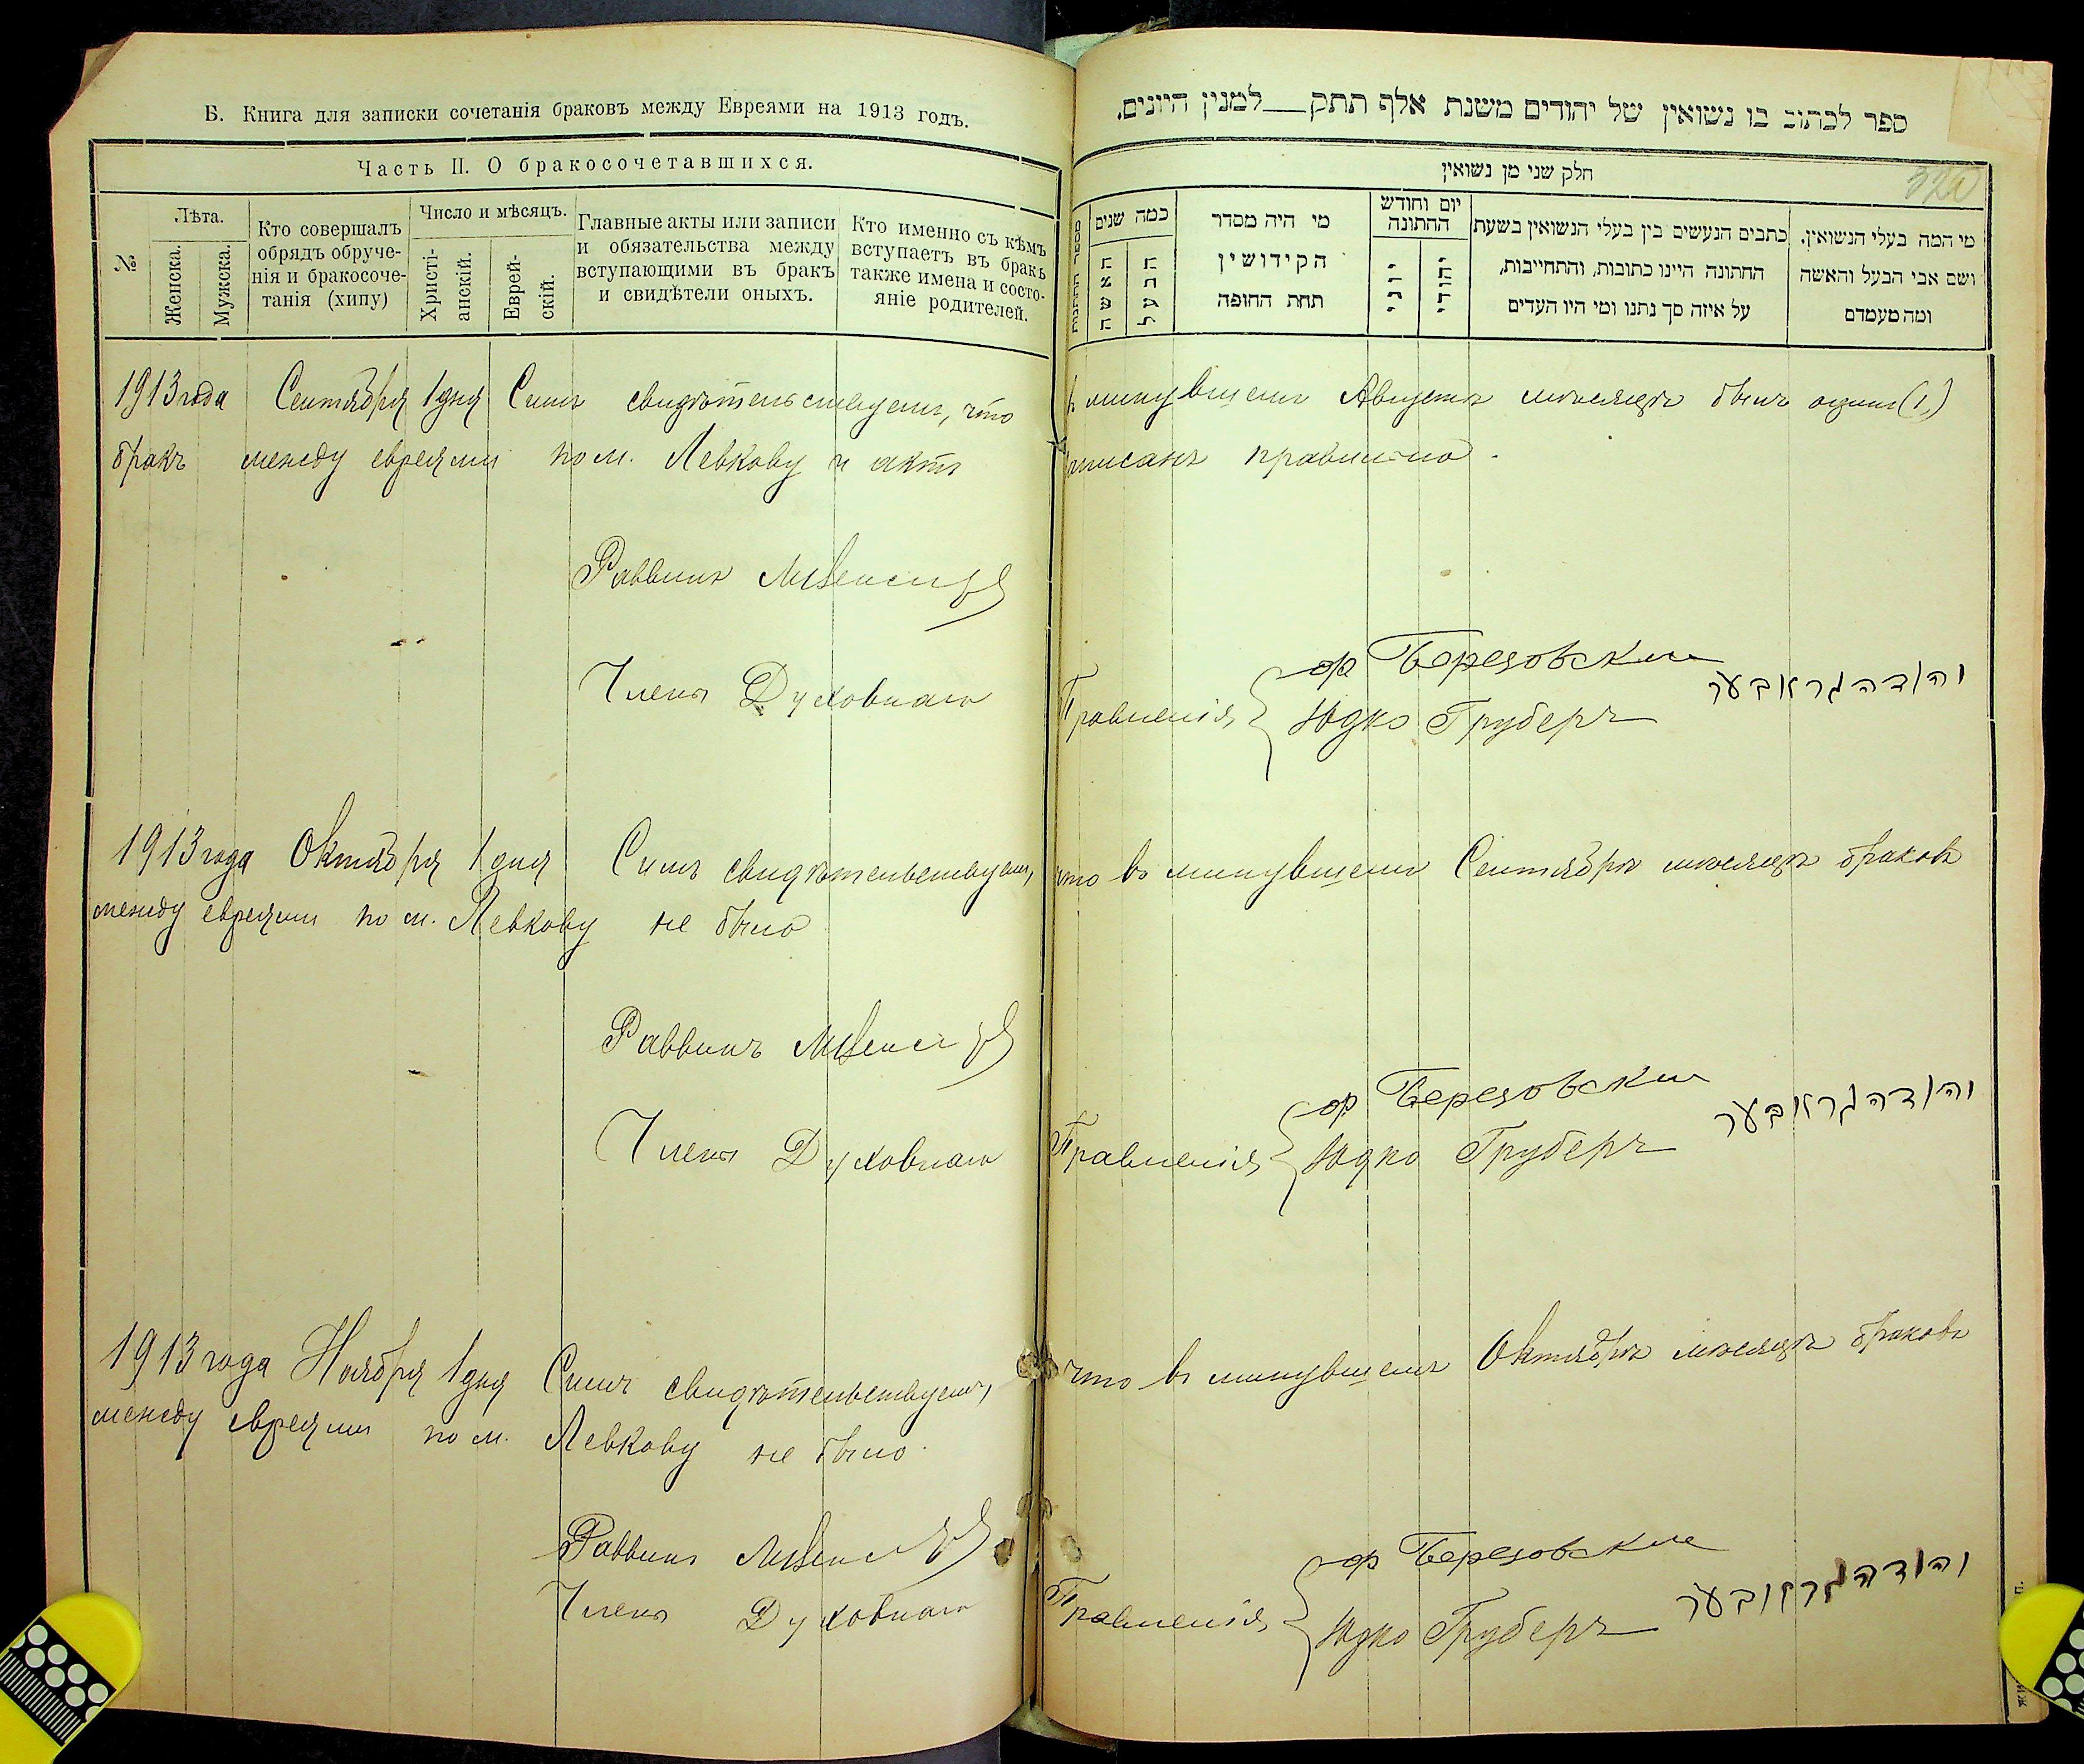 Б. Книга для записки сочетанія браковъ между Евреями на 1913 годъ.
Часть II. О бракосочетавшихся.
№
Лѣта.
Женска.
Мужска.
Кто совершалъ
обрядъ обруче-
нія и бракосоче-
танія (хипу)
Число и мѣсяцъ.
Христі-
анскій.
Еврей-
скій.
Главные акты или записи
и обязательства между
вступающими въ бракъ
и свидѣтели оныхъ.
Кто именно съ кѣмъ
вступаетъ въ бракъ
также имена и состо-
яніе родителей.
ספר לכתוב בו נשואין של יהודים משנת אלף תתק___למנין היונים.
חלק שני מן נשואין
מספר החתונות
כמה שנים
האשה
הבעל
מי היה מסדר
הקידושין
תחת החופה
יום וחודש
החתונה
יוני
יהודי
כתבים הנעשים בין בעלי הנשואין בשעת
החתונה היינו כתובות, והתחייבות,
על איזה סך נתנו ומי היו העדים
מי המה בעלי הנשואין.
ושם אבי הבעל והאשה
ומה מעמדם
1913 года Сентября 1 дня Симъ свидѣтельствуемъ, что в минувшемъ Августѣ мѣсяцѣ былъ одинъ (1)
бракъ между евреями по м. Левкову и актъ писанъ правильно.
Раввинъ
Члены Духовнаго Правленія
Березовскій
Юдко Груберъ
יהודה גראבער
1913 года Октября 1 дня Симъ свидѣтельствуемъ, что въ минувшемъ Сентябрѣ мѣсяцѣ браковъ
между евреями по м. Левкову не было
Раввинъ
Члены Духовнаго Правленія
Березовскій
Юдко Груберъ
יהודה גראבער
1913 года Ноября 1 дня Симъ свидѣтельствуемъ, что въ минувшемъ Октябрѣ мѣсяцѣ браковъ
между евреями по м. Левкову не было.
Раввинъ
Члены Духовнаго Правленія
Березовскій
Юдко Груберъ
יהודה גראבער